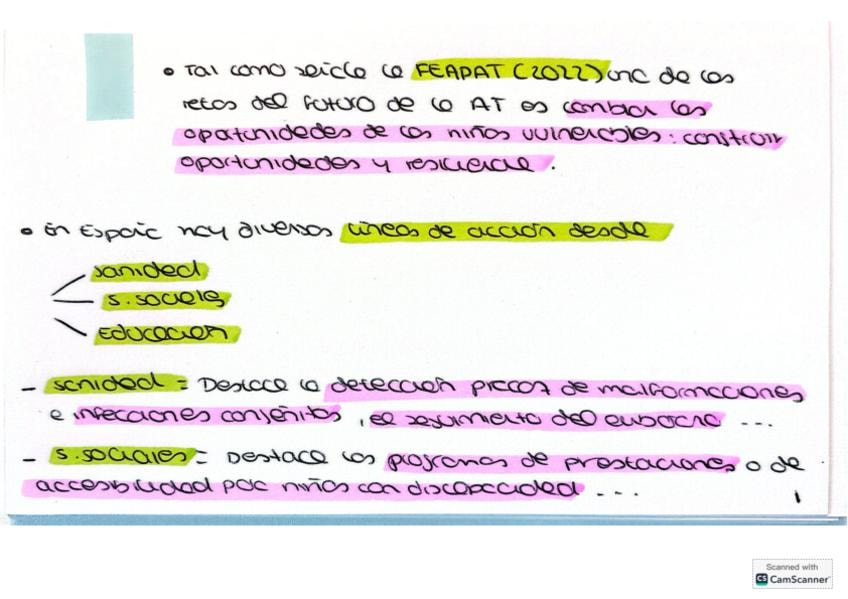 • Tal como señala la FEAPAT (2022) una de los
retos del futuro de la AT es cambiar las
oportunidades de los niños vulnerables: construir
oportunidades y resiliencia.
• En España hay diversas líneas de acción desde
sanidad
s. sociales
Educación
- sanidad = Destaca la detección precoz de malformaciones
e infecciones congénitas, el seguimiento del embarazo ...
- s. sociales = Destaca los programas de prestaciones o de
accesibilidad para niños con discapacidad ...
1
Scanned with
CS CamScanner